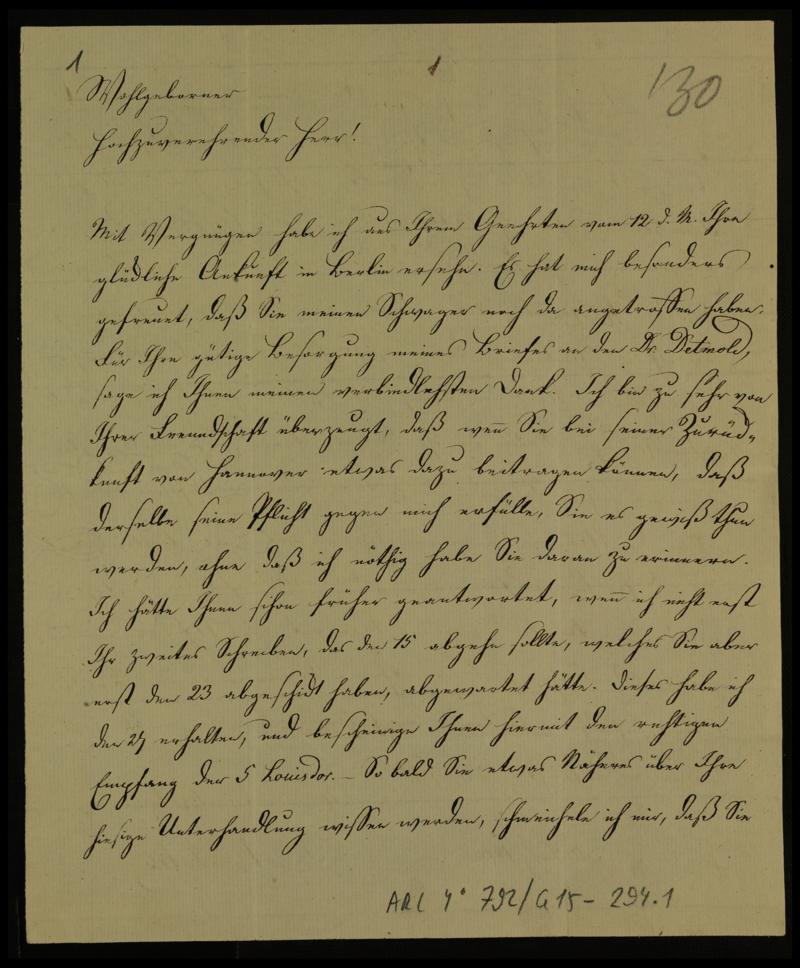 1
1
130
Wohlgeborner
Hochzuverehrender Herr!
Mit Vergnügen habe ich aus Ihrem Geehrten vom 12 d. M. Ihre
glückliche Ankunft in Berlin ersehn. Es hat mich besonders
gefreuet, daß Sie meinen Schwager noch da angetroffen haben.
Für Ihre gütige Besorgung meines Briefes an den Dr. Detmold,
sage ich Ihnen meinen verbindlichsten Dank. Ich bin zu sehr von
Ihrer Freundschaft überzeugt, daß wen̄ Sie bei seiner Zurück-
kunft von Hannover etwas dazu beitragen können, daß
derselbe seine Pflicht gegen mich erfülle, Sie es gewiß thun
werden, ohne daß ich nöthig habe Sie daran zu erinnern.
Ich hätte Ihnen schon früher geantwortet, wen̄ ich nicht erst
Ihr zweites Schreiben, das den 15 abgehn sollte, welches Sie aber
erst den 23 abgeschickt haben, abgewartet hätte. Dieses habe ich
den 27 erhalten, und bescheinige Ihnen hiermit den richtigen
Empfang der 5 Louisdor. – So bald Sie etwas Näheres über Ihre
hiesige Unterhandlung wissen werden, schmeichele ich mir, daß Sie
ARC 4° 792/G15-294.1